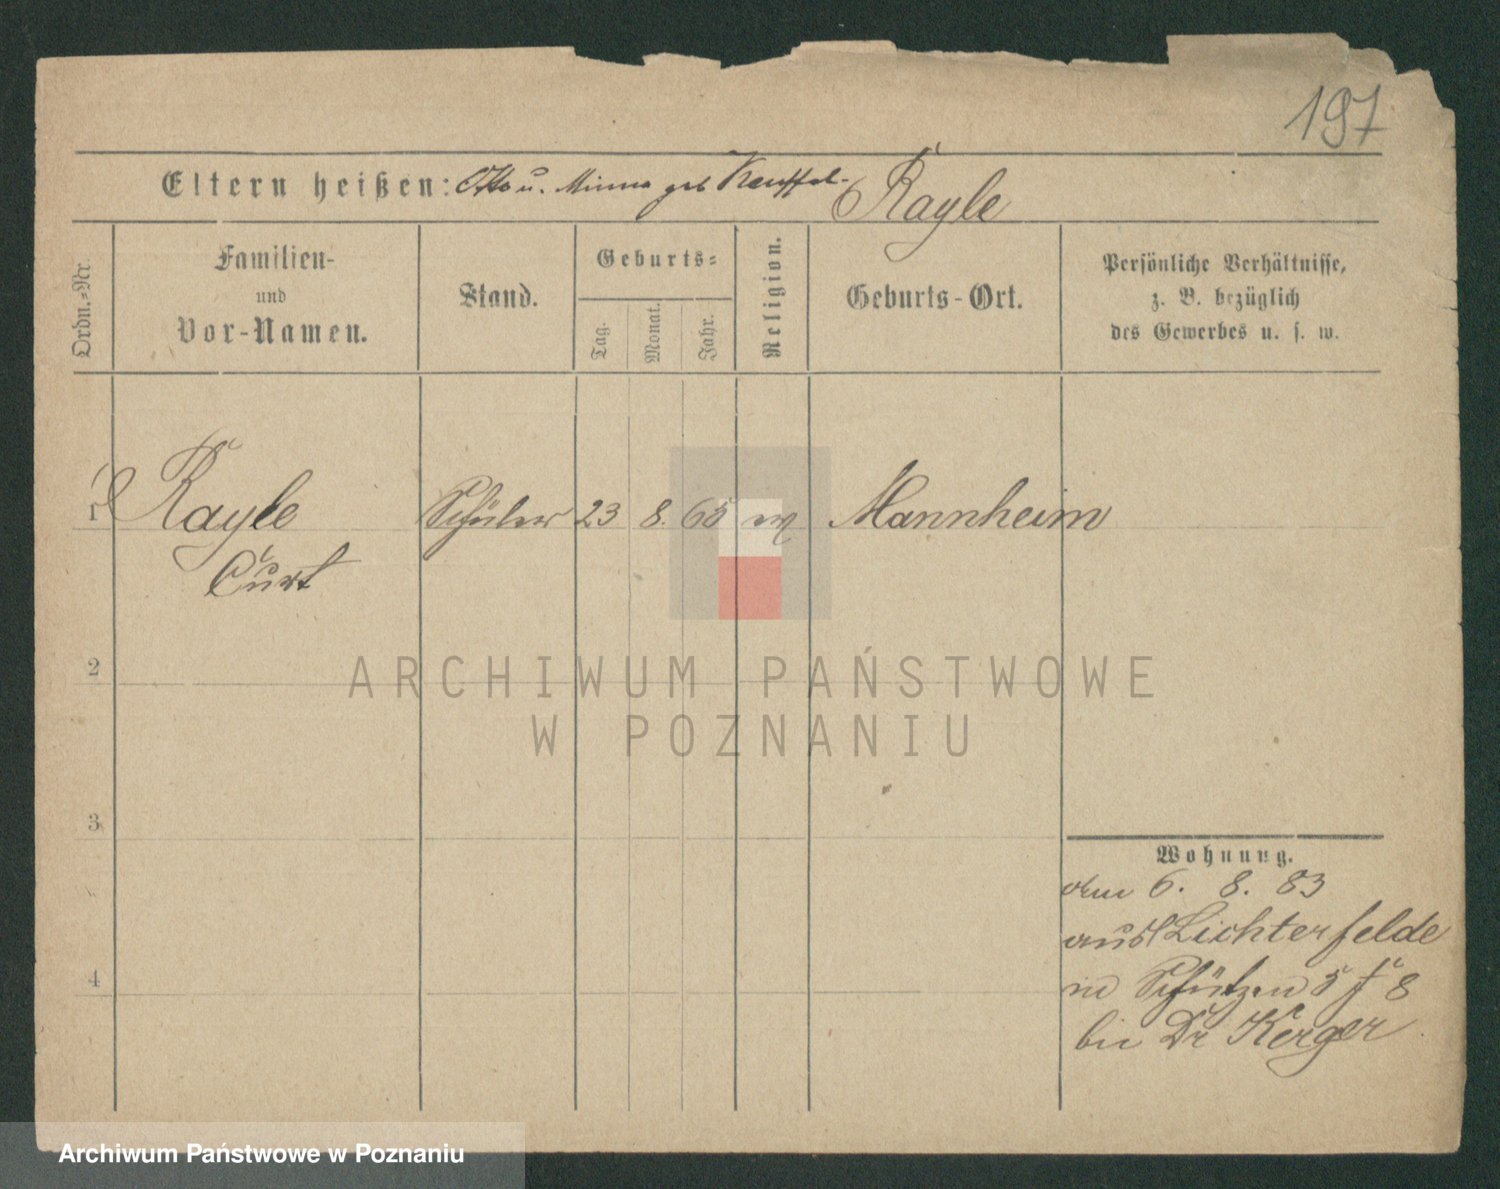 197
Eltern heißen: Otto u. Minna geb Rayle
Ordn.=Nr.
Familien-
und
Vor-Namen.
Stand.
Geburts=
Tag.
Monat.
Jahr.
Religion.
Geburts-Ort.
Persönliche Verhältnisse,
z. B. bezüglich
des Gewerbes u. s. w.
1 Rayle Schüler 23 8. 65 Mannheim
Curt
2
3
4
Wohnung.
den 6. 8. 83
aus Lichterfelde
in Schützen 8
bei Dr Kerger
ARCHIWUM PAŃSTWOWE
W POZNANIU
Archiwum Państwowe w Poznaniu